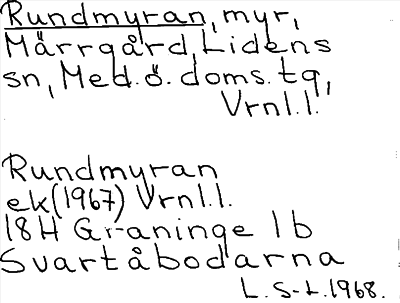 Rundmyran, myr,
Märrgård, Lidens
sn, Med. ö. doms. tg,
Vrnl.l.
Rundmyran
ek(1967) Vrnl.l.
18H Graninge 1b
Svartåbodarna
L. S-L. 1968.